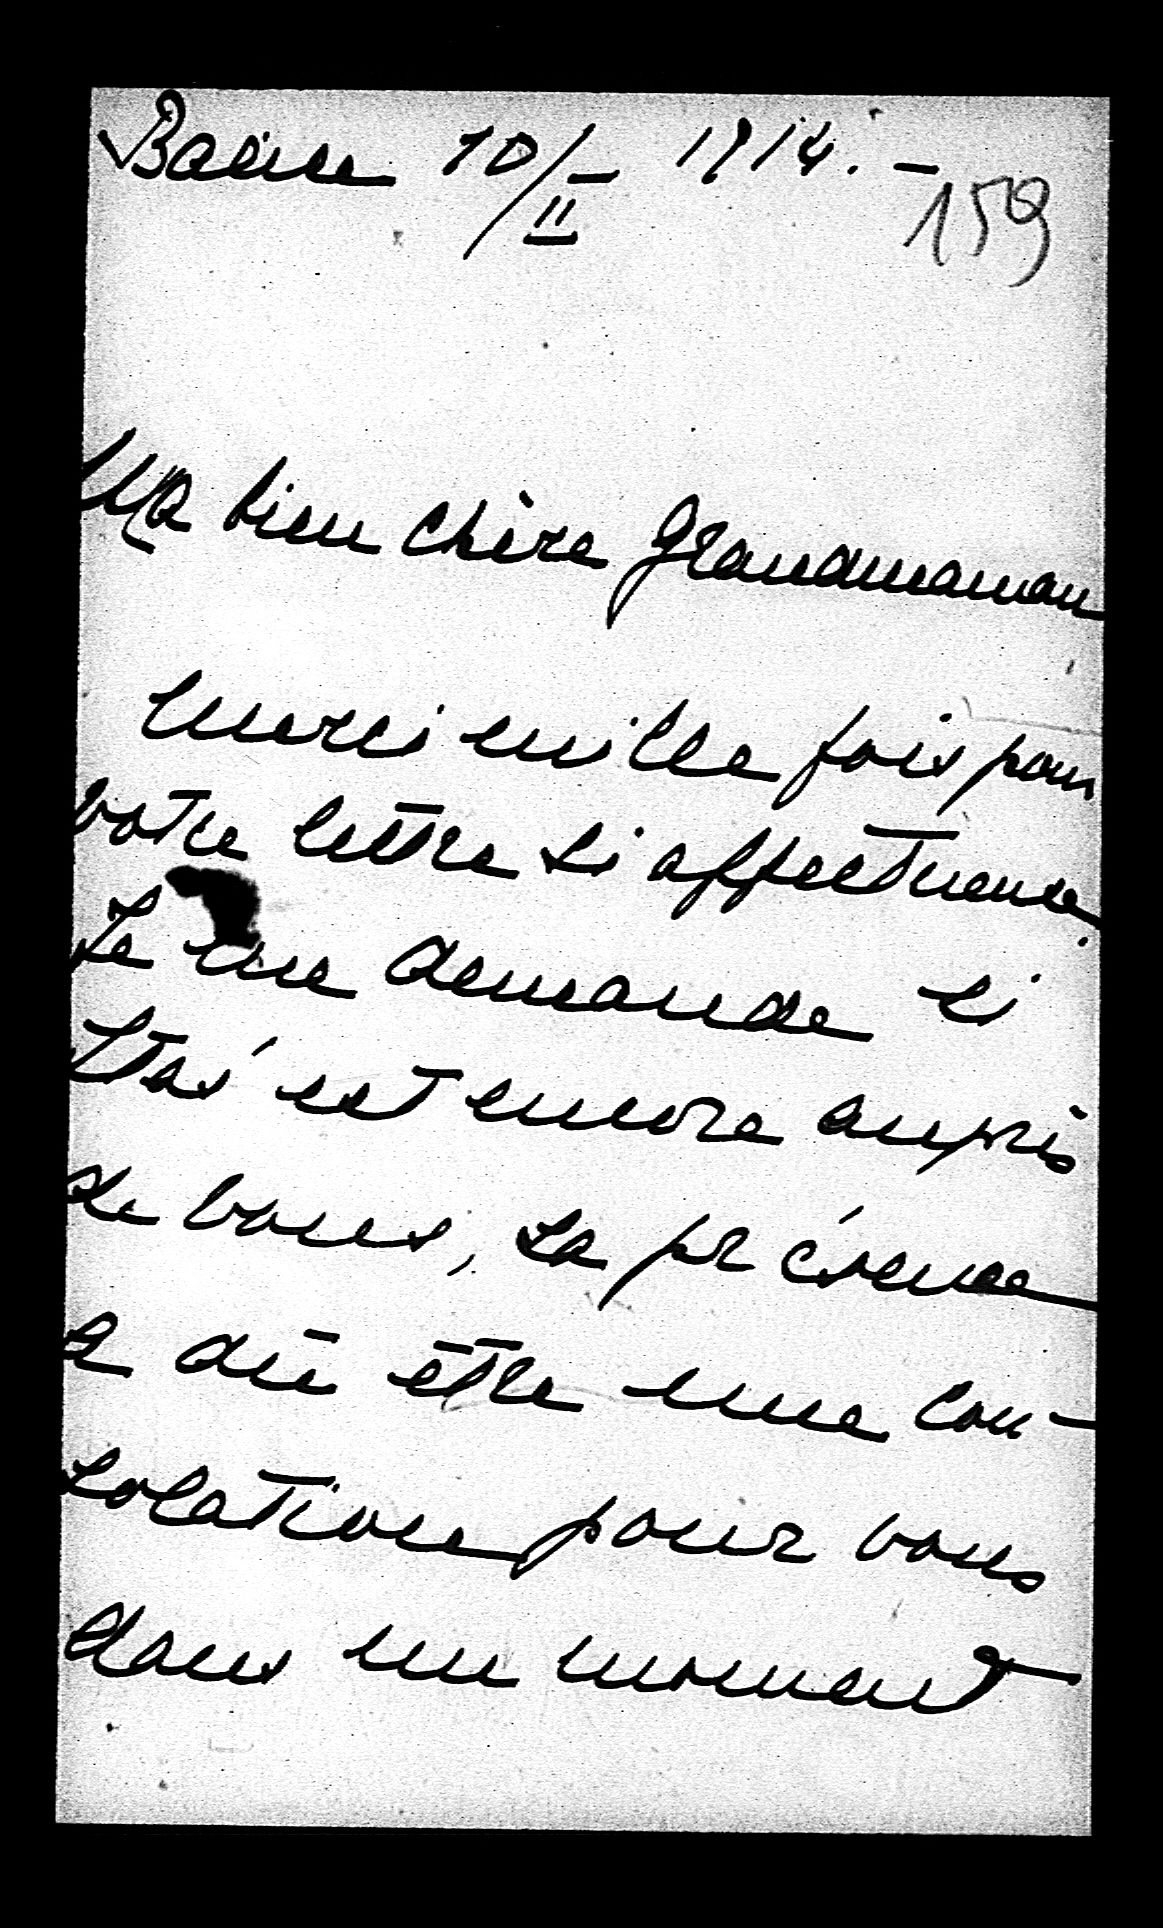 10/II 1914. –
159
Ma bien chère Grandmaman
merci mille fois pour
votre lettre si affectueuse.
Je me demande si
Stas' est encore auprès
de vous, sa présence
a dû être une con-
solation pour vous
dans un moment